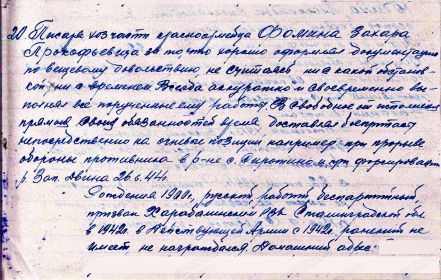 20 Писаря хозчасти красноармейца Фомина Захара
Прокофьевича за то что хорошо оформляя документацию
по вещевому довольствию, не считаясь ни с какой обстанов-
кой ни с временем. Всегда аккуратно и своевременно вы-
полняя всю порученную ему работу. В свободное от исполнения
прямых своих обязанностей время доставлял боеприпасы
непосредственно на огневые позиции например при прорыве
обороны противника в р-не с. Сиротино, при форсировании
р. Зап. Двина 26.6.44г.
Рождения 1900г., русский рабочий беспартийный
призван Харабалинский РВК Сталинградской обл.
в 1942г. в Действующей Армии с 1942г. ранений не
имеет не награждался Домашний адрес: